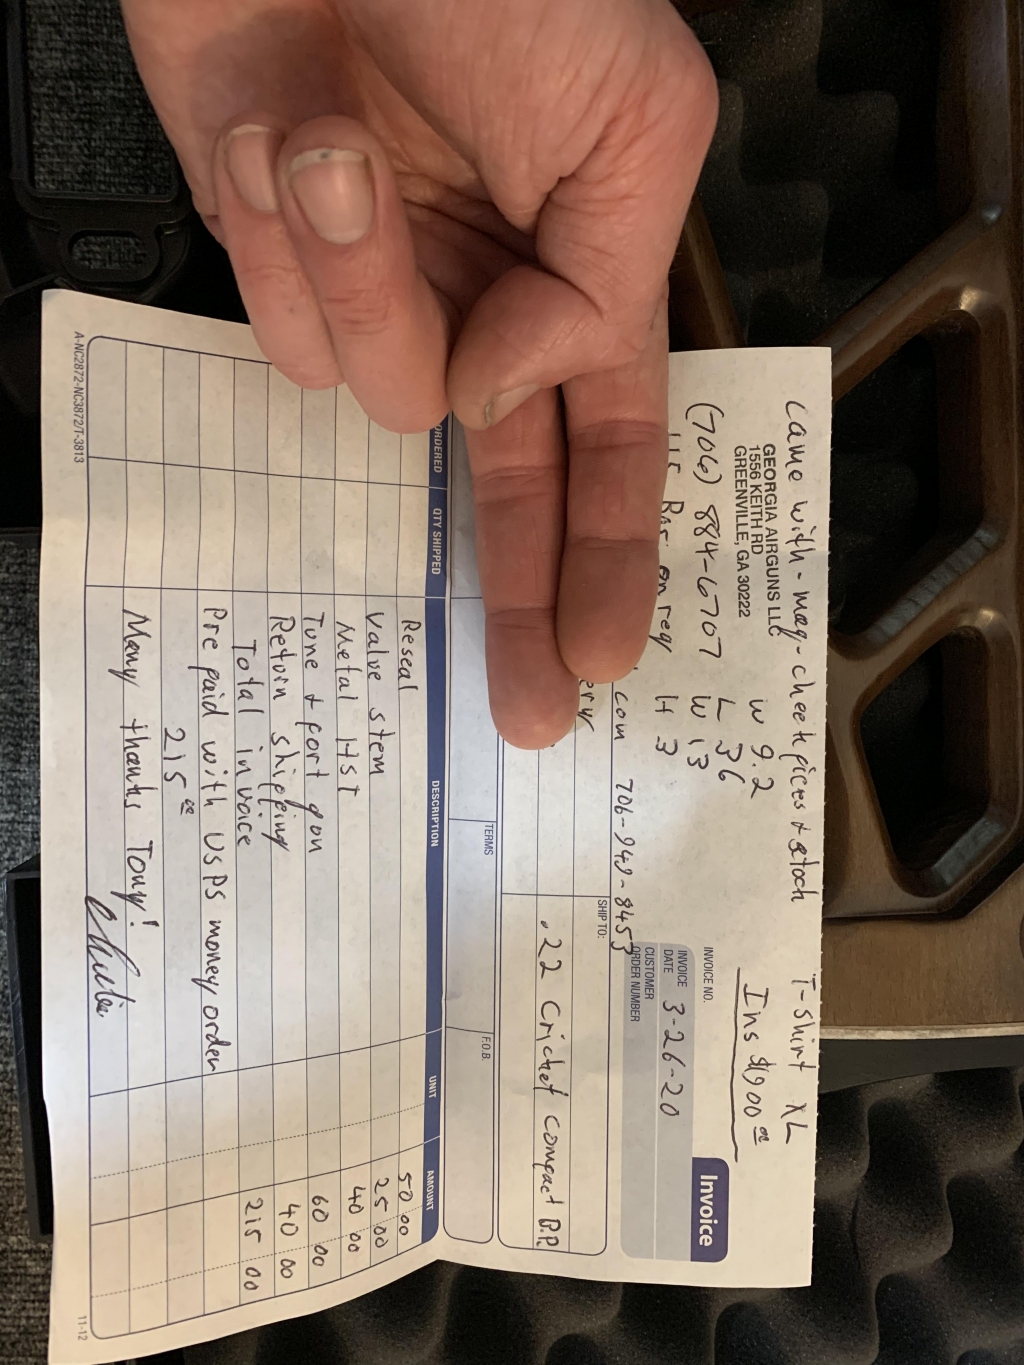 came with - mag - cheek pieces + stock T-Shirt XL
GEORGIA AIRGUNS LLC
1556 KEITH RD
GREENVILLE, GA 30222
W 9.2
L 36
W 13
H 3
Ins $1900 00
(706) 884-6707
on reg
.com 706-949-8453
Invoice
INVOICE NO.
INVOICE DATE 3-26-20
CUSTOMER ORDER NUMBER
SHIP TO:
.22 Cricket compact B.P.
TERMS
F.O.B.
ORDERED QTY SHIPPED DESCRIPTION UNIT AMOUNT
Reseal 50 00
Valve stem 25 00
Metal HST 40 00
Tune + port gun 60 00
Return shipping 40 00
Total invoice 215 00
Pre paid with USPS money order
215 00
Many thanks Tony!
A-NC2872-NC3872/T-3813
11-12